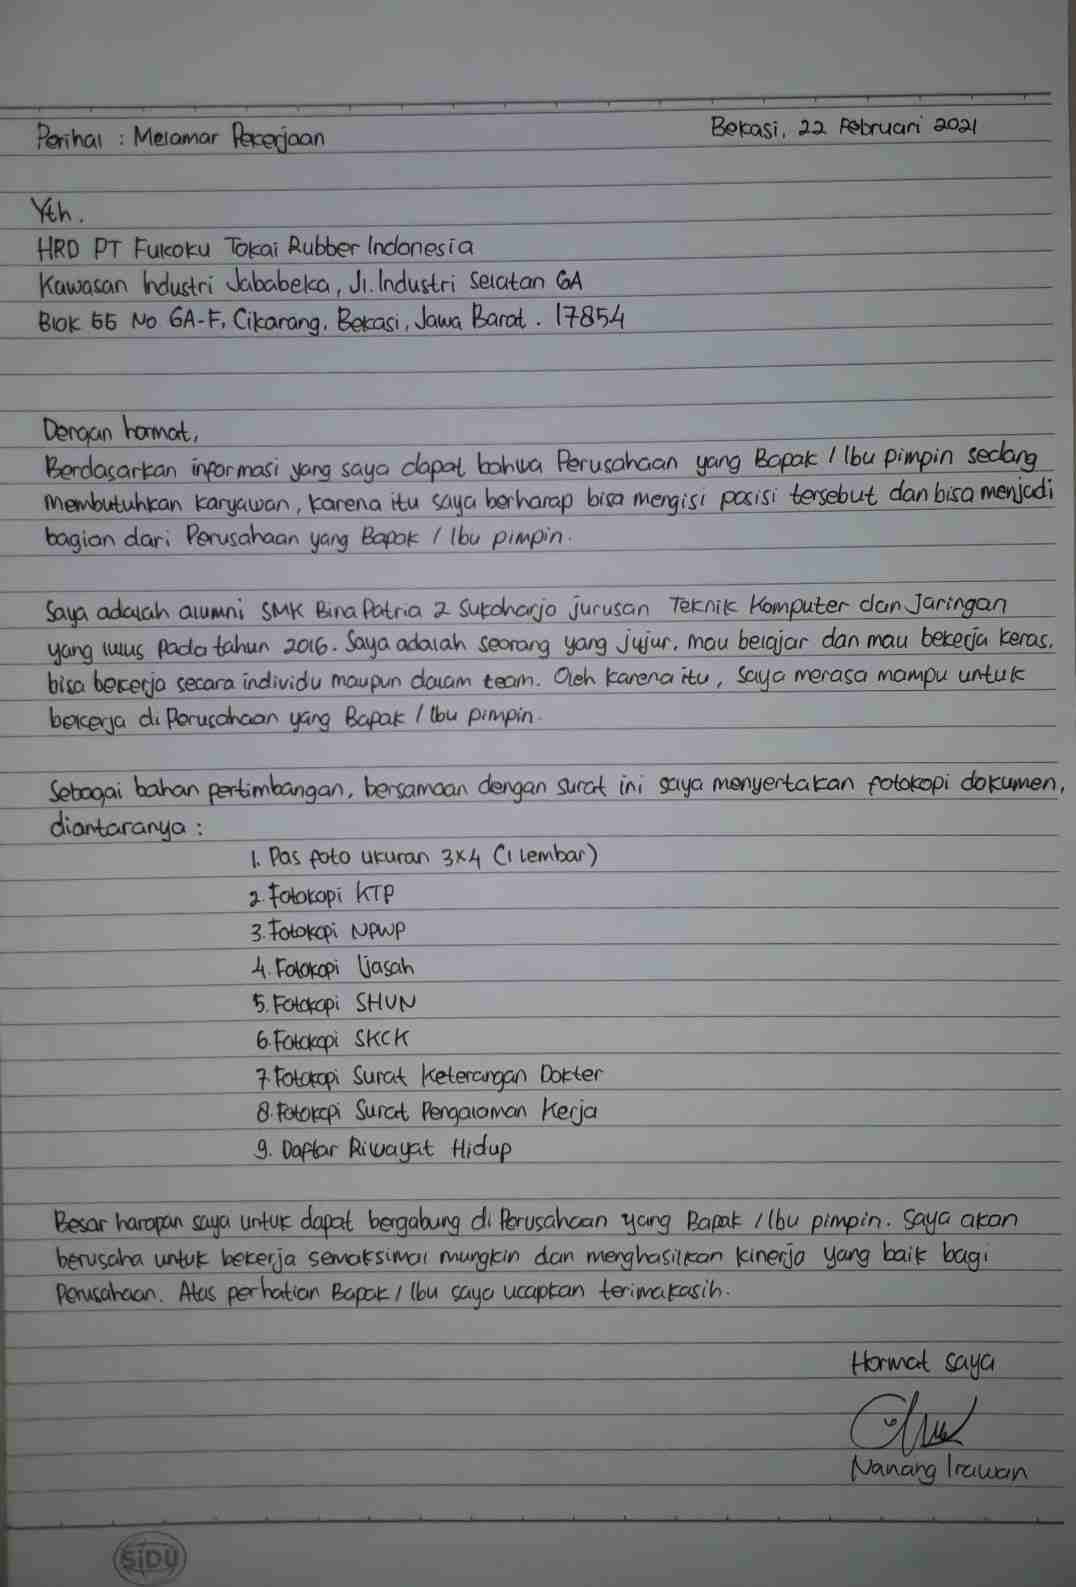 Perihal : Melamar Pekerjaan
Bekasi, 22 Februari 2021
Yth.
HRD PT Fukoku Tokai Rubber Indonesia
Kawasan Industri Jababeka, Jl. Industri Selatan 6A
Blok 55 No 6A-F, Cikarang, Bekasi, Jawa Barat. 17854
Dengan hormat,
Berdasarkan informasi yang saya dapat bahwa Perusahaan yang Bapak / Ibu pimpin sedang
membutuhkan karyawan, karena itu saya berharap bisa mengisi posisi tersebut dan bisa menjadi
bagian dari Perusahaan yang Bapak / Ibu pimpin.
Saya adalah alumni SMK Bina Patria 2 Sukoharjo jurusan Teknik Komputer dan Jaringan
yang lulus pada tahun 2016. Saya adalah seorang yang jujur, mau belajar dan mau bekerja keras,
bisa bekerja secara individu maupun dalam team. Oleh karena itu, saya merasa mampu untuk
bekerja di Perusahaan yang Bapak / Ibu pimpin.
Sebagai bahan pertimbangan, bersamaan dengan surat ini saya menyertakan fotokopi dokumen,
diantaranya :
1. Pas foto ukuran 3x4 (1 Lembar)
2. Fotokopi KTP
3. Fotokopi NPWP
4. Fotokopi Ijasah
5. Fotokopi SHUN
6. Fotokopi SKCK
7. Fotokopi Surat Keterangan Dokter
8. Fotokopi Surat Pengalaman Kerja
9. Daftar Riwayat Hidup
Besar harapan saya untuk dapat bergabung di Perusahaan yang Bapak / Ibu pimpin. Saya akan
berusaha untuk bekerja semaksimal mungkin dan menghasilkan kinerja yang baik bagi
Perusahaan. Atas perhatian Bapak / Ibu saya ucapkan terimakasih.
Hormat saya
Nanang Irawan
SiDU